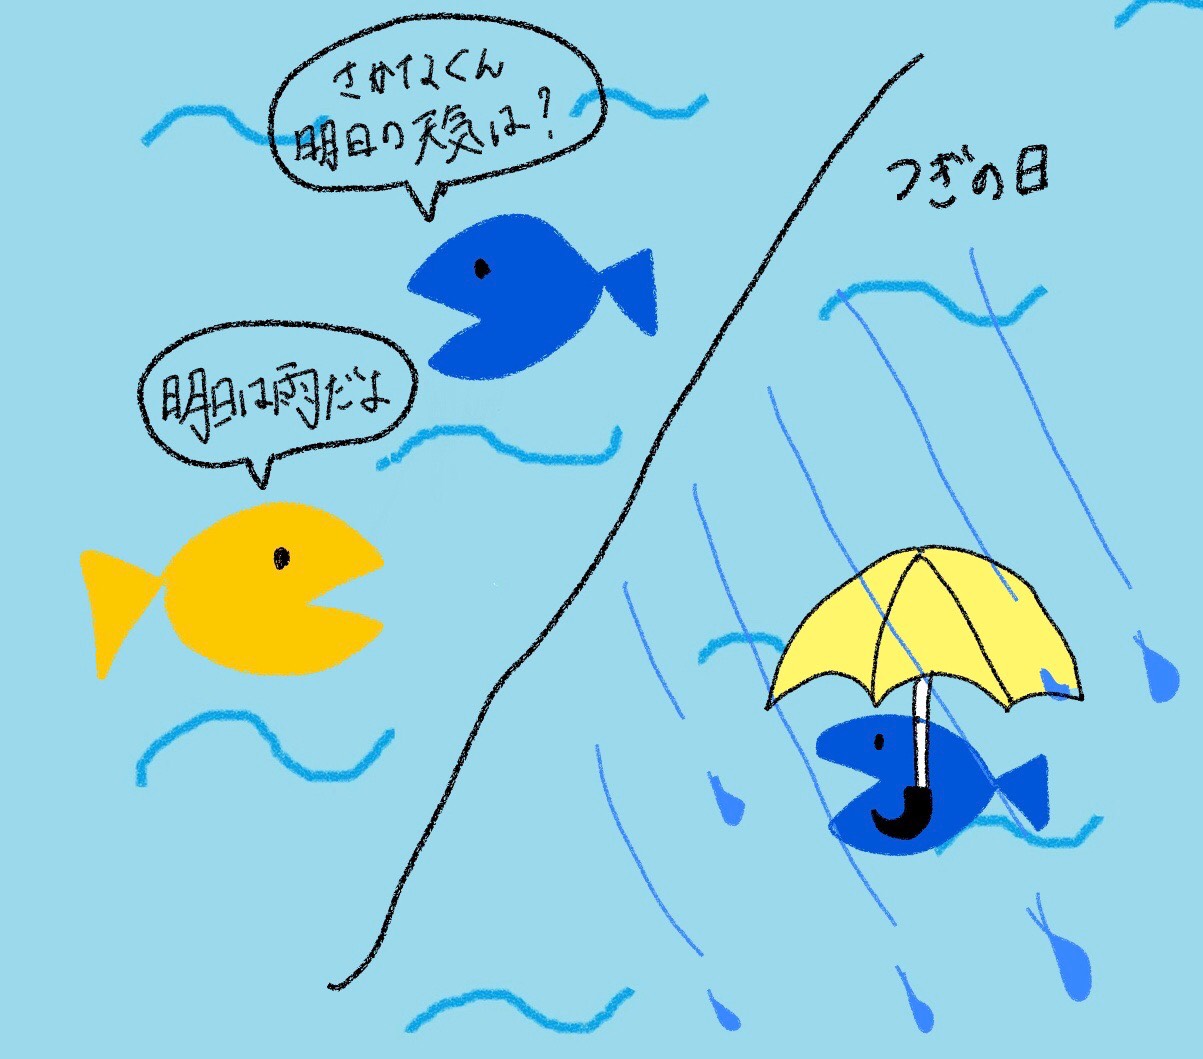 さかなくん
明日の天気は?
明日は雨だよ
つぎの日